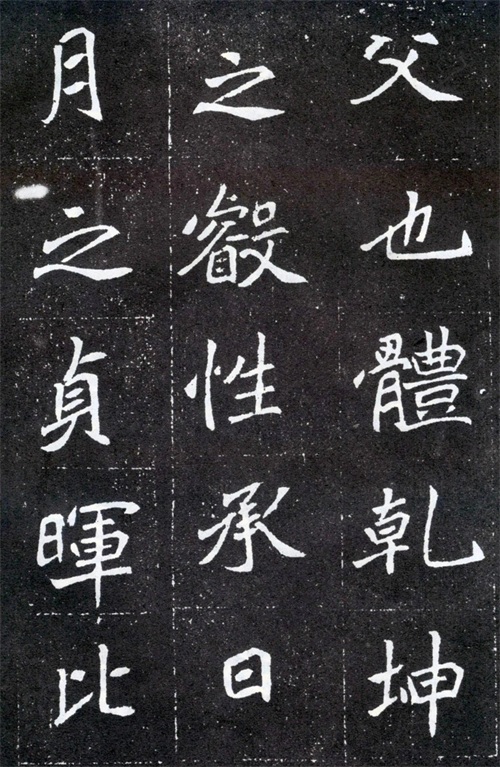 父也體乾坤
之叡性承日
月之貞暉比